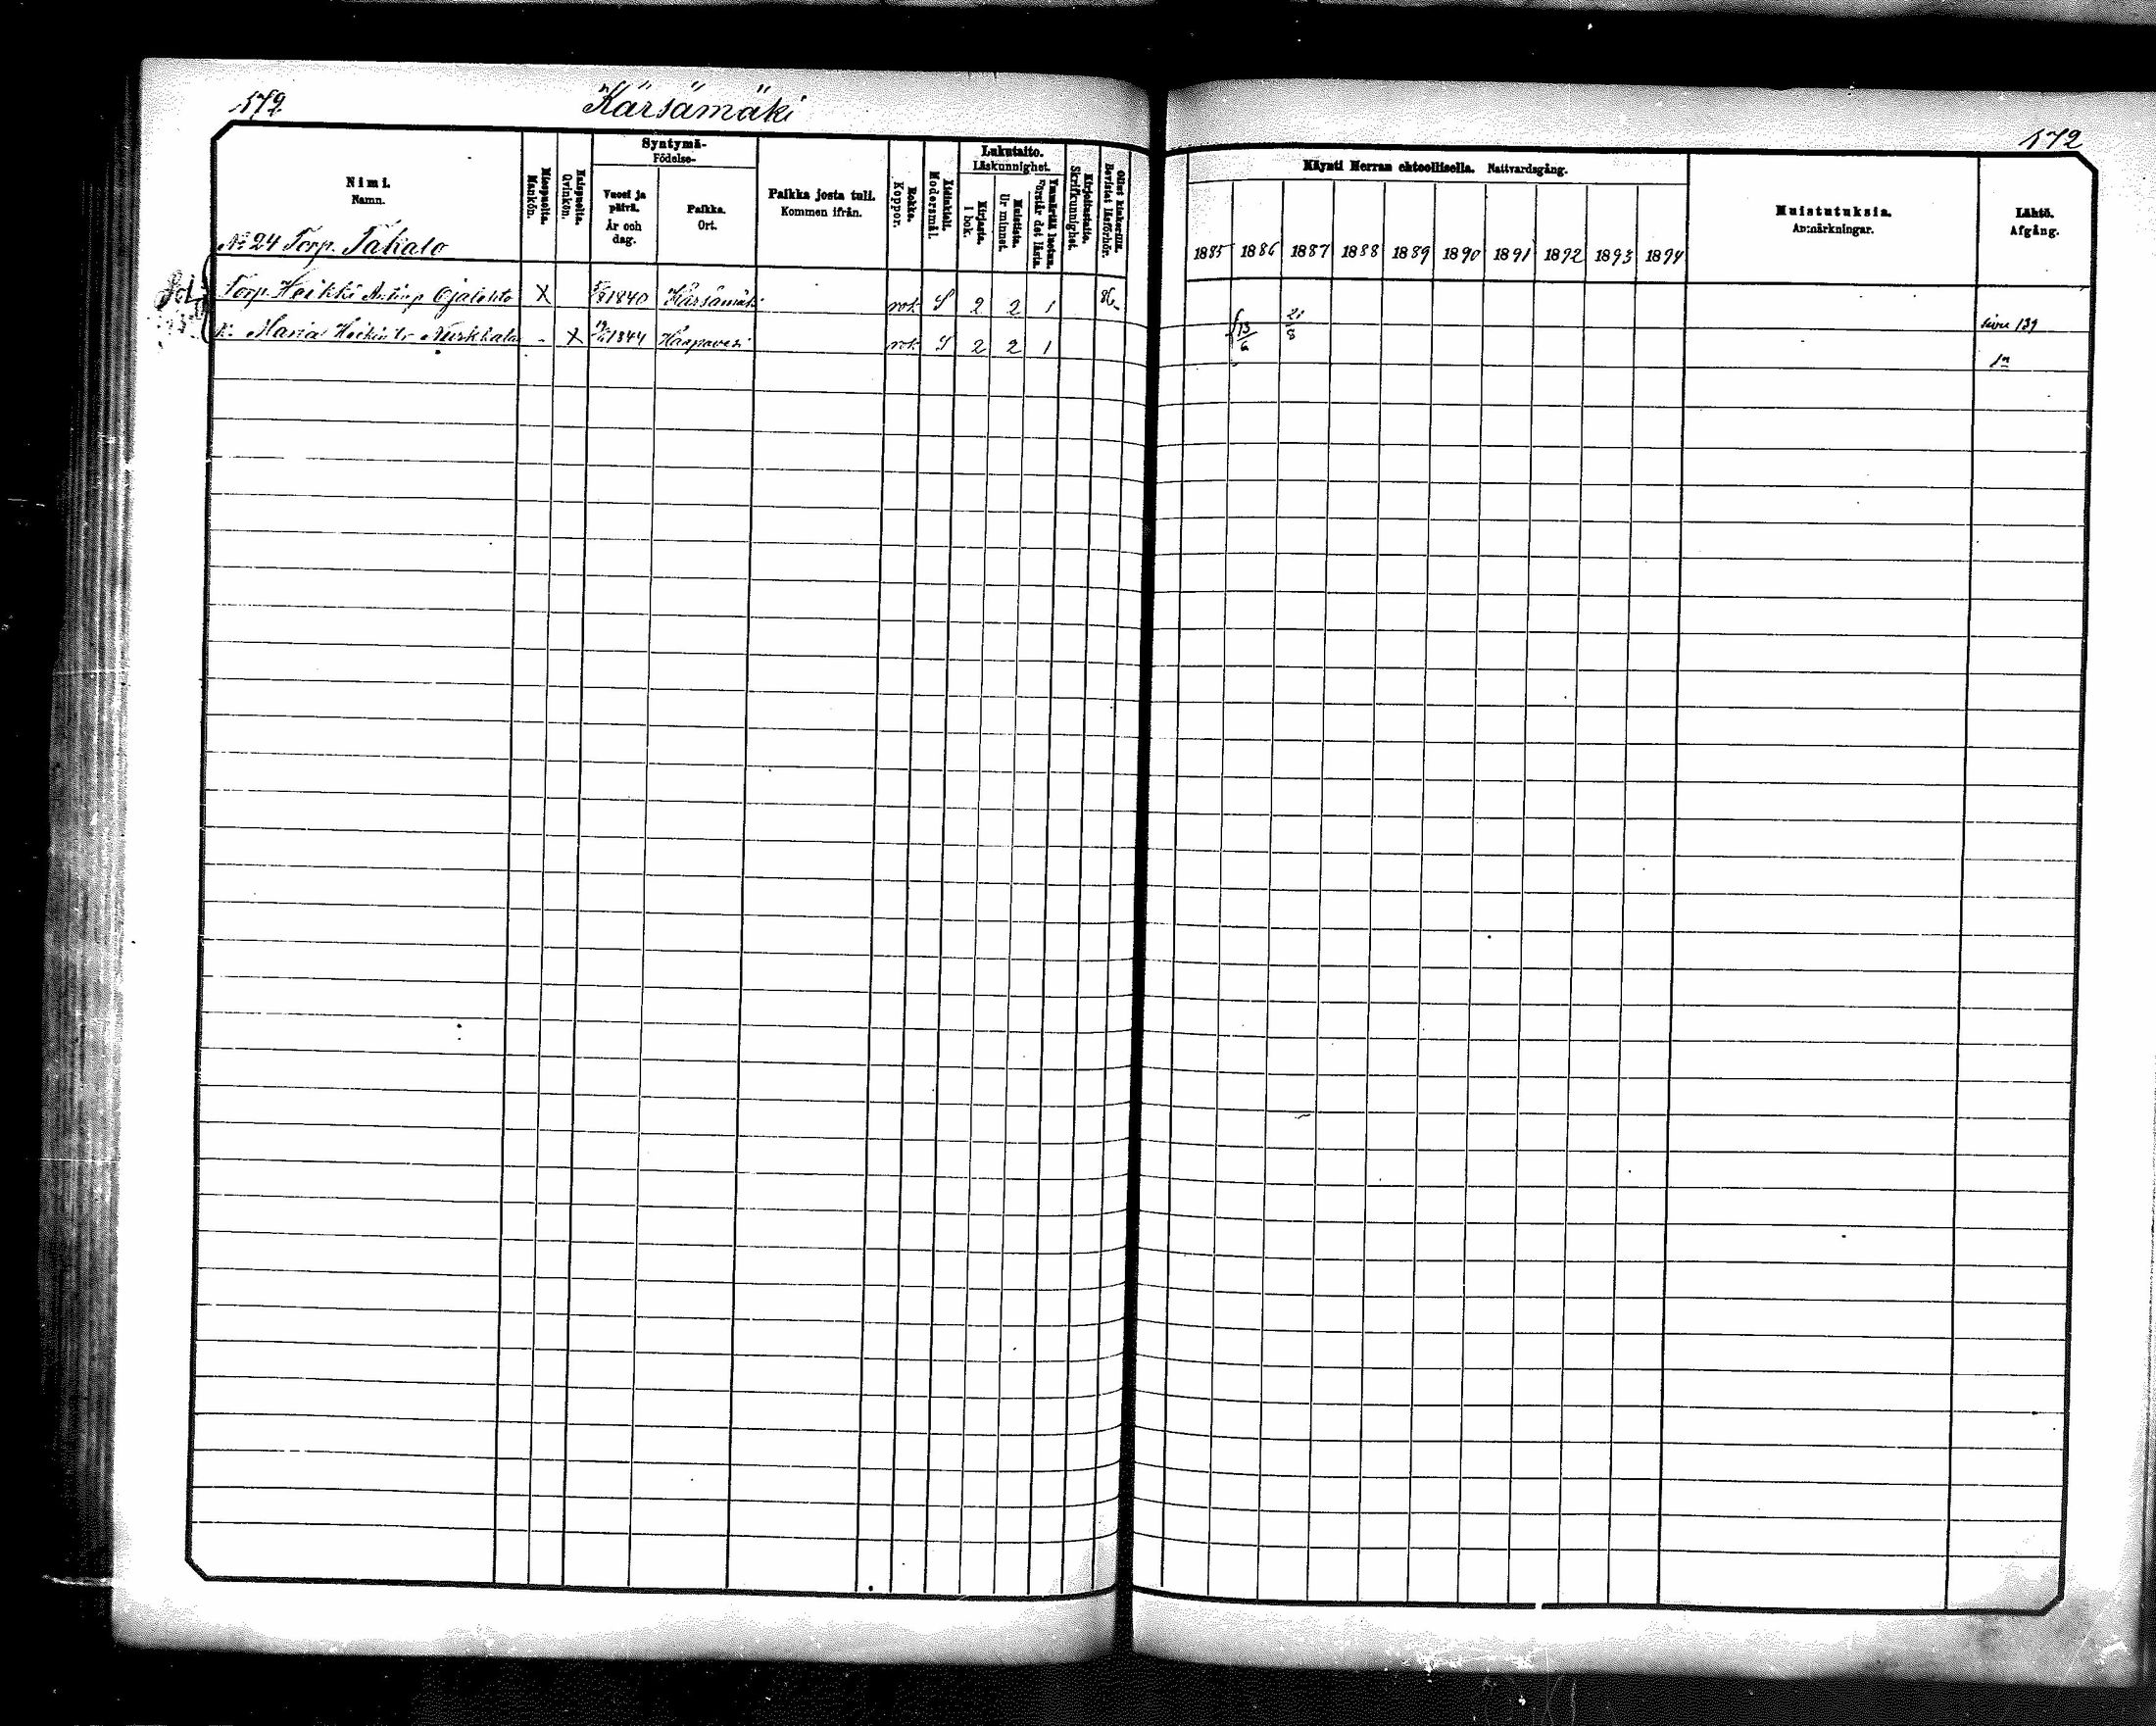 172
Kärsämäki
172
Nimi.
Namn.
Miespuolta.
Mankön.
Naispuolta.
Qvinkön.
Syntymä-
Födelse-
Vuosi ja
päivä.
År och
dag.
Paikka.
Ort.
Paikka josta tuli.
Kommen ifrån.
Rokko.
Koppor.
Äidinkieli.
Modersmål.
Lukutaito.
Läskunnighet.
Kirjasta.
I bok.
Muistista.
Ur minnet.
Ymmärtää luetun.
Förstår det lästa.
Kirjoitustaito.
Skrifkunnighet.
Ollut kinkerillä.
Bevistat läsförhör.
Käynti Herran ehtoollisella. Nattvardsgång.
1885 1886 1887 1888 1889 1890 1891 1892 1893 1894
Muistutuksia.
Anmärkningar.
Lähtö.
Afgång.
No 24 Torp. Takalo
Torp. Heikki Antinp Ojalehto X 1840 Kärsämäki rok S 2 2 1 86
sivu 139
V. Maria Heikin tr X 1844 Haapavesi rok S 2 2 1 13/6 21/8